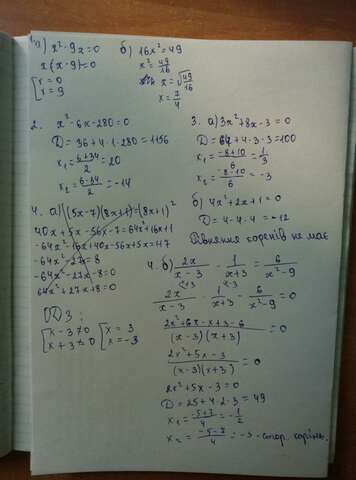 1. а) x² - 9x = 0
x(x - 9) = 0
[x = 0
[x = 9
б) 16x² = 49
x² = 49/16
x = √49/16
x = 7/4
2. x² - 6x - 280 = 0
D = 36 + 4·1·280 = 1156
x₁ = 6+34/2 = 20
x₂ = 6-34/2 = -14
3. а) 3x² + 8x - 3 = 0
D = 64 + 4·3·3 = 100
x₁ = -8+10/6 = 1/3
x₂ = -8-10/6 = -3
б) 4x² + 2x + 1 = 0
D = 4 - 4·4 = -12
Рівняння коренів не має
4. а) (5x-7)(8x+1) = (8x+1)²
40x + 5x - 56x - 7 = 64x² + 16x + 1
-64x² - 16x + 40x - 56x + 5x = 1+7
-64x² - 27x = 8
-64x² - 27x - 8 = 0
64x² + 27x + 8 = 0
ОДЗ:
[x - 3 ≠ 0
[x + 3 ≠ 0
[x = 3
[x = -3
4. б) 2x/x-3 - 1/x+3 = 6/x²-9
2x/x-3 - 1/x+3 - 6/x²-9 = 0
2x²+6x-x+3-6/(x-3)(x+3) = 0
2x²+5x-3/(x-3)(x+3) = 0
2x² + 5x - 3 = 0
D = 25 + 4·2·3 = 49
x₁ = -5+7/4 = -1/2
x₂ = -5-7/4 = -3 - стор. корінь.